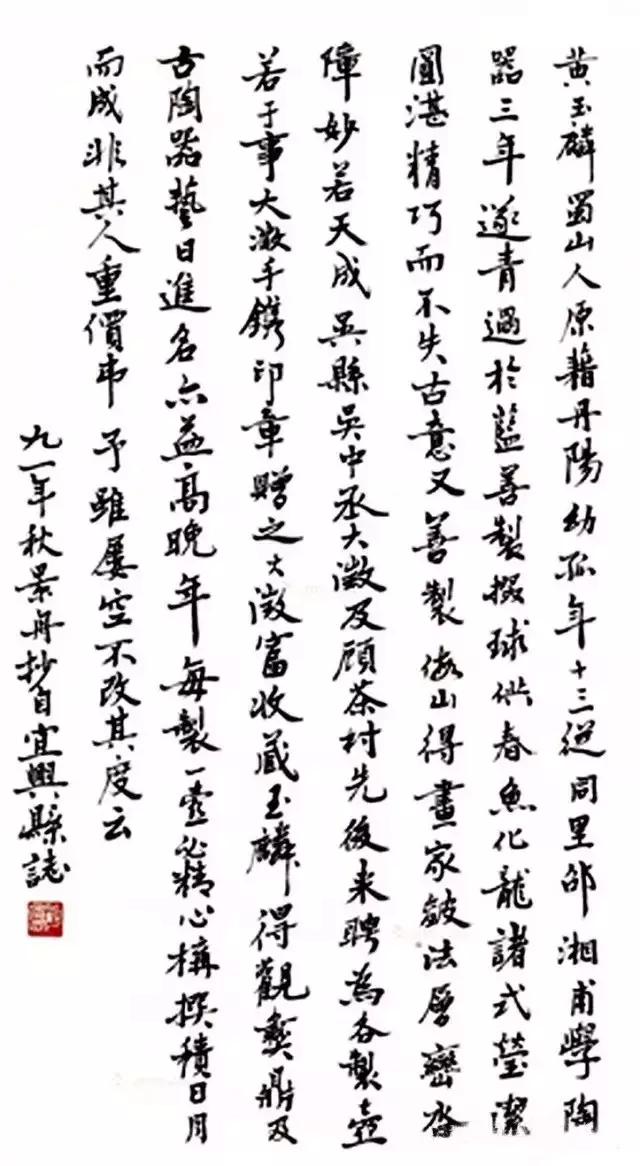 黄玉麟蜀山人原籍丹陽幼孤年十三從同里邵湘甫學陶
器三年遂青過於藍善製掇球供春魚化龍諸式瑩潔
圓湛精巧而不失古意又善製假山得畫家皴法層巒沓
障妙若天成吳縣吳中丞大澂及顧茶村先後来聘為各製壺
若干事大澂手鐫印章贈之大澂富收藏玉麟得觀彝鼎及
古陶器藝日進名亦益高晚年每製一壺必精心構撰積日月
而成非其人重價弗予雖屡空不改其度云
九一年秋景舟抄自宜興縣誌